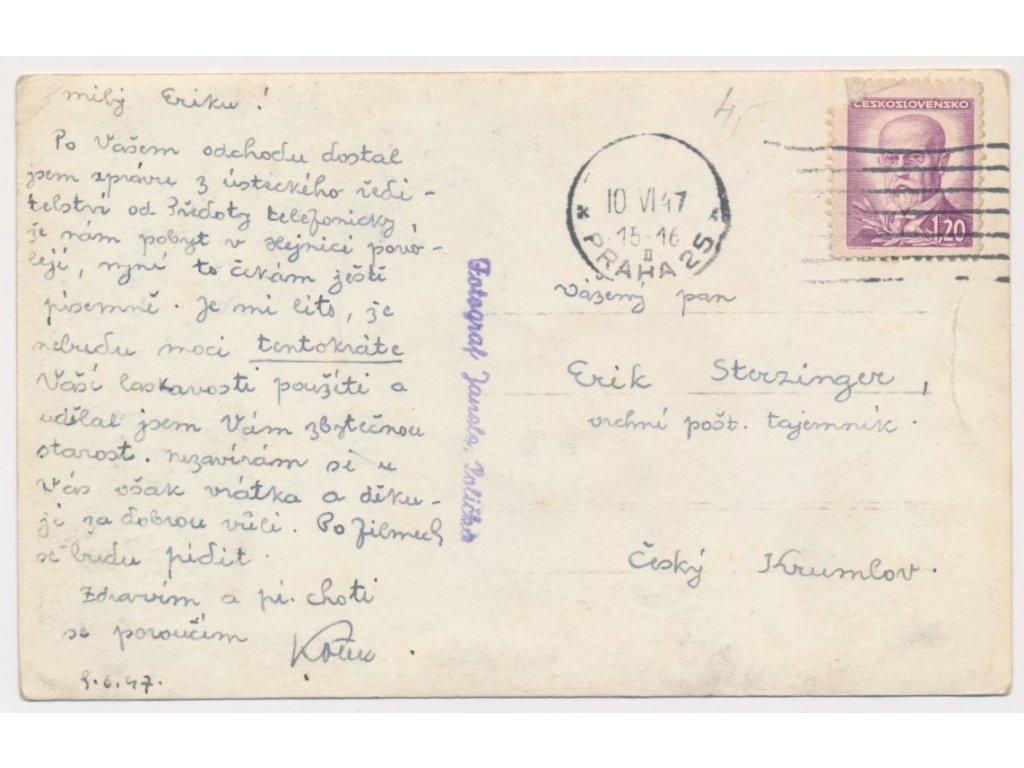 milý Eriku!
Po Vašem odchodu dostal
jsem zprávu z ústeckého ředi-
telství od Předoty telefonicky,
že nám pobyt v Hejnici povo-
lejí, nyní to čekám ještě
písemně. Je mi líto, že
nebudu moci tentokráte
Vaší laskavosti použíti a
udělal jsem Vám zbytečnou
starost. nezavírám si u
Vás však vrátka a děku-
ji za dobrou vůli. Po filmech
se budu pídit.
Zdravím a pí. choti
se poroučím
9.6.47.
Fotograf Polička
ČESKOSLOVENSKO
1,20
10 VI 47
15-16
II
PRAHA 25
Vážený pan
Erik Sterzinger,
vrchní pošt. tajemník.
Český Krumlov.